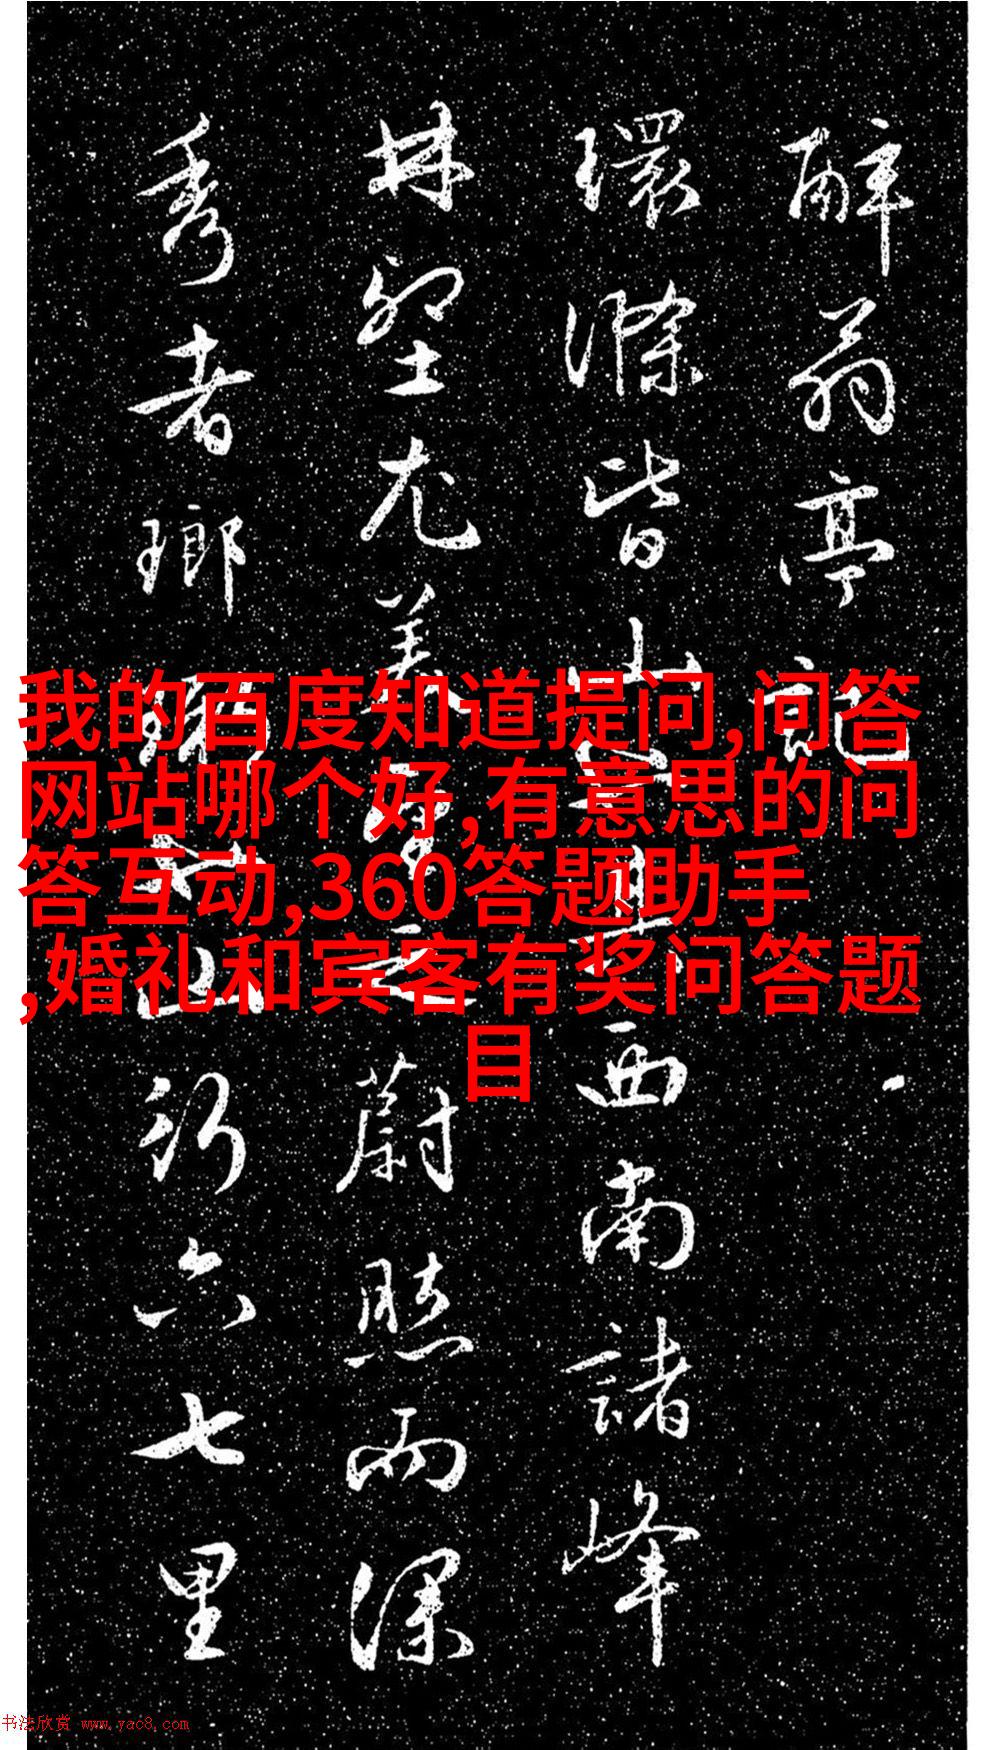 醉翁亭記
環滁皆山也其西南諸峰
林壑尤美望之蔚然而深
秀者瑯琊也山行六七里
我的百度知道提问,问答
网站哪个好,有意思的问
答互动,360答题助手
,婚礼和宾客有奖问答题
目
书法欣赏 www.yac8.com